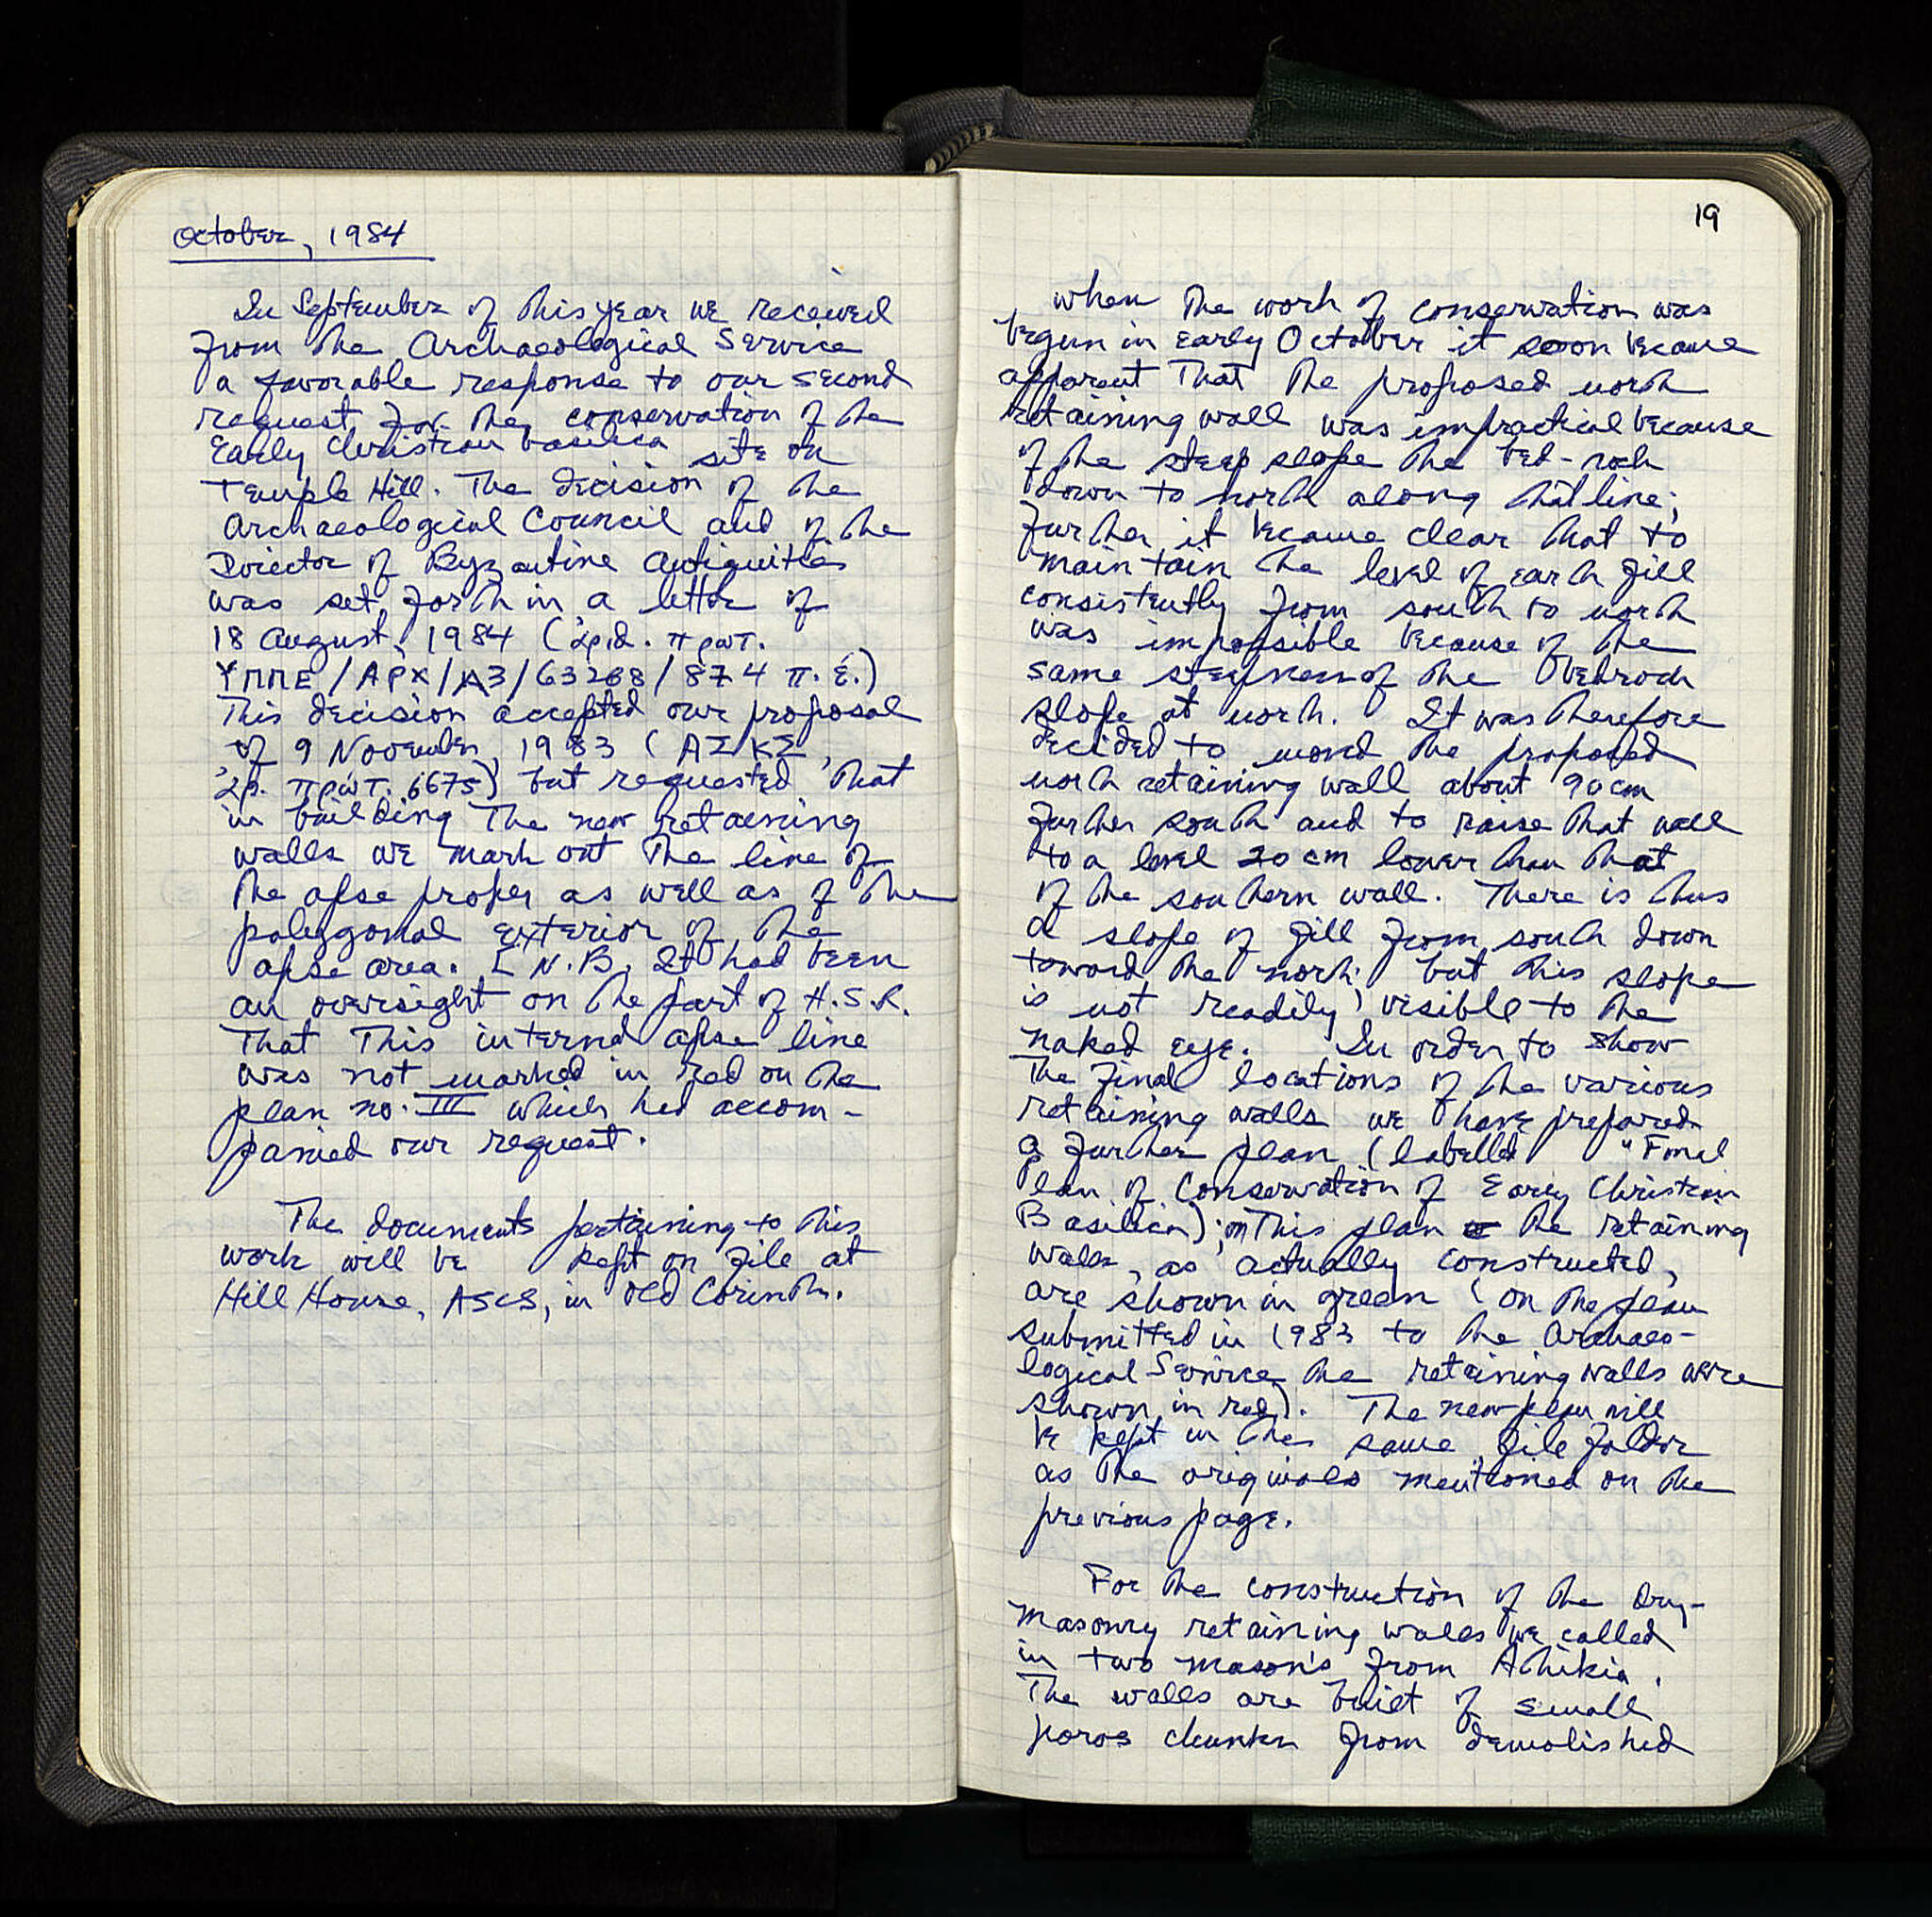 October, 1984
In September of this year we received
from the Archaeological Service
a favorable response to our second
request for the conservation of the
Early Christian basilica site on
Temple Hill. The decision of the
Archaeological Council and of the
Director of Byzantine Antiquities
was set forth in a letter of
18 August, 1984 (ἀριθ. πρωτ.
ΥΠΠΕ/ΑΡΧ/Α3/63268/874 π.έ.)
This decision accepted our proposal
of 9 November, 1983 (ΑΣΚΣ,
ἀρ. πρωτ. 6675) but requested that
in building the new retaining
walls we mark out the line of
the apse proper as well as of the
polygonal exterior of the
apse area. [N.B. It had been
an oversight on the part of H.S.R.
that this internal apse line
was not marked in red on the
plan no. III which had accom-
panied our request.
The documents pertaining to this
work will be kept on file at
Hill House, ASCS, in Old Corinth.
19
When the work of conservation was
begun in early October it soon became
apparent that the proposed north
retaining wall was impractical because
of the steep slope the bed-rock
down to north along that line;
further it became clear that to
maintain the level of earth fill
consistently from south to north
was impossible because of the
same steepness of the bedrock
slope at north. It was therefore
decided to moved the proposed
north retaining wall about 90 cm
further south and to raise that wall
to a level 20 cm lower than that
of the southern wall. There is thus
a slope of fill from south down
toward the north but this slope
is not readily visible to the
naked eye. In order to show
the final locations of the various
retaining walls we have prepared
a further plan (labelled "Final
Plan of Conservation of Early Christian
Basilica); on this plan the retaining
walls, as actually constructed,
are shown in green (on the plan
submitted in 1983 to the Archaeo-
logical Service the retaining walls were
shown in red). The new plan will
be kept in the same file folder
as the originals mentioned on the
previous page.
For the construction of the dry-
masonry retaining walls we called
in two mason's from Athikia.
The walls are built of small
poros chunks from demolished